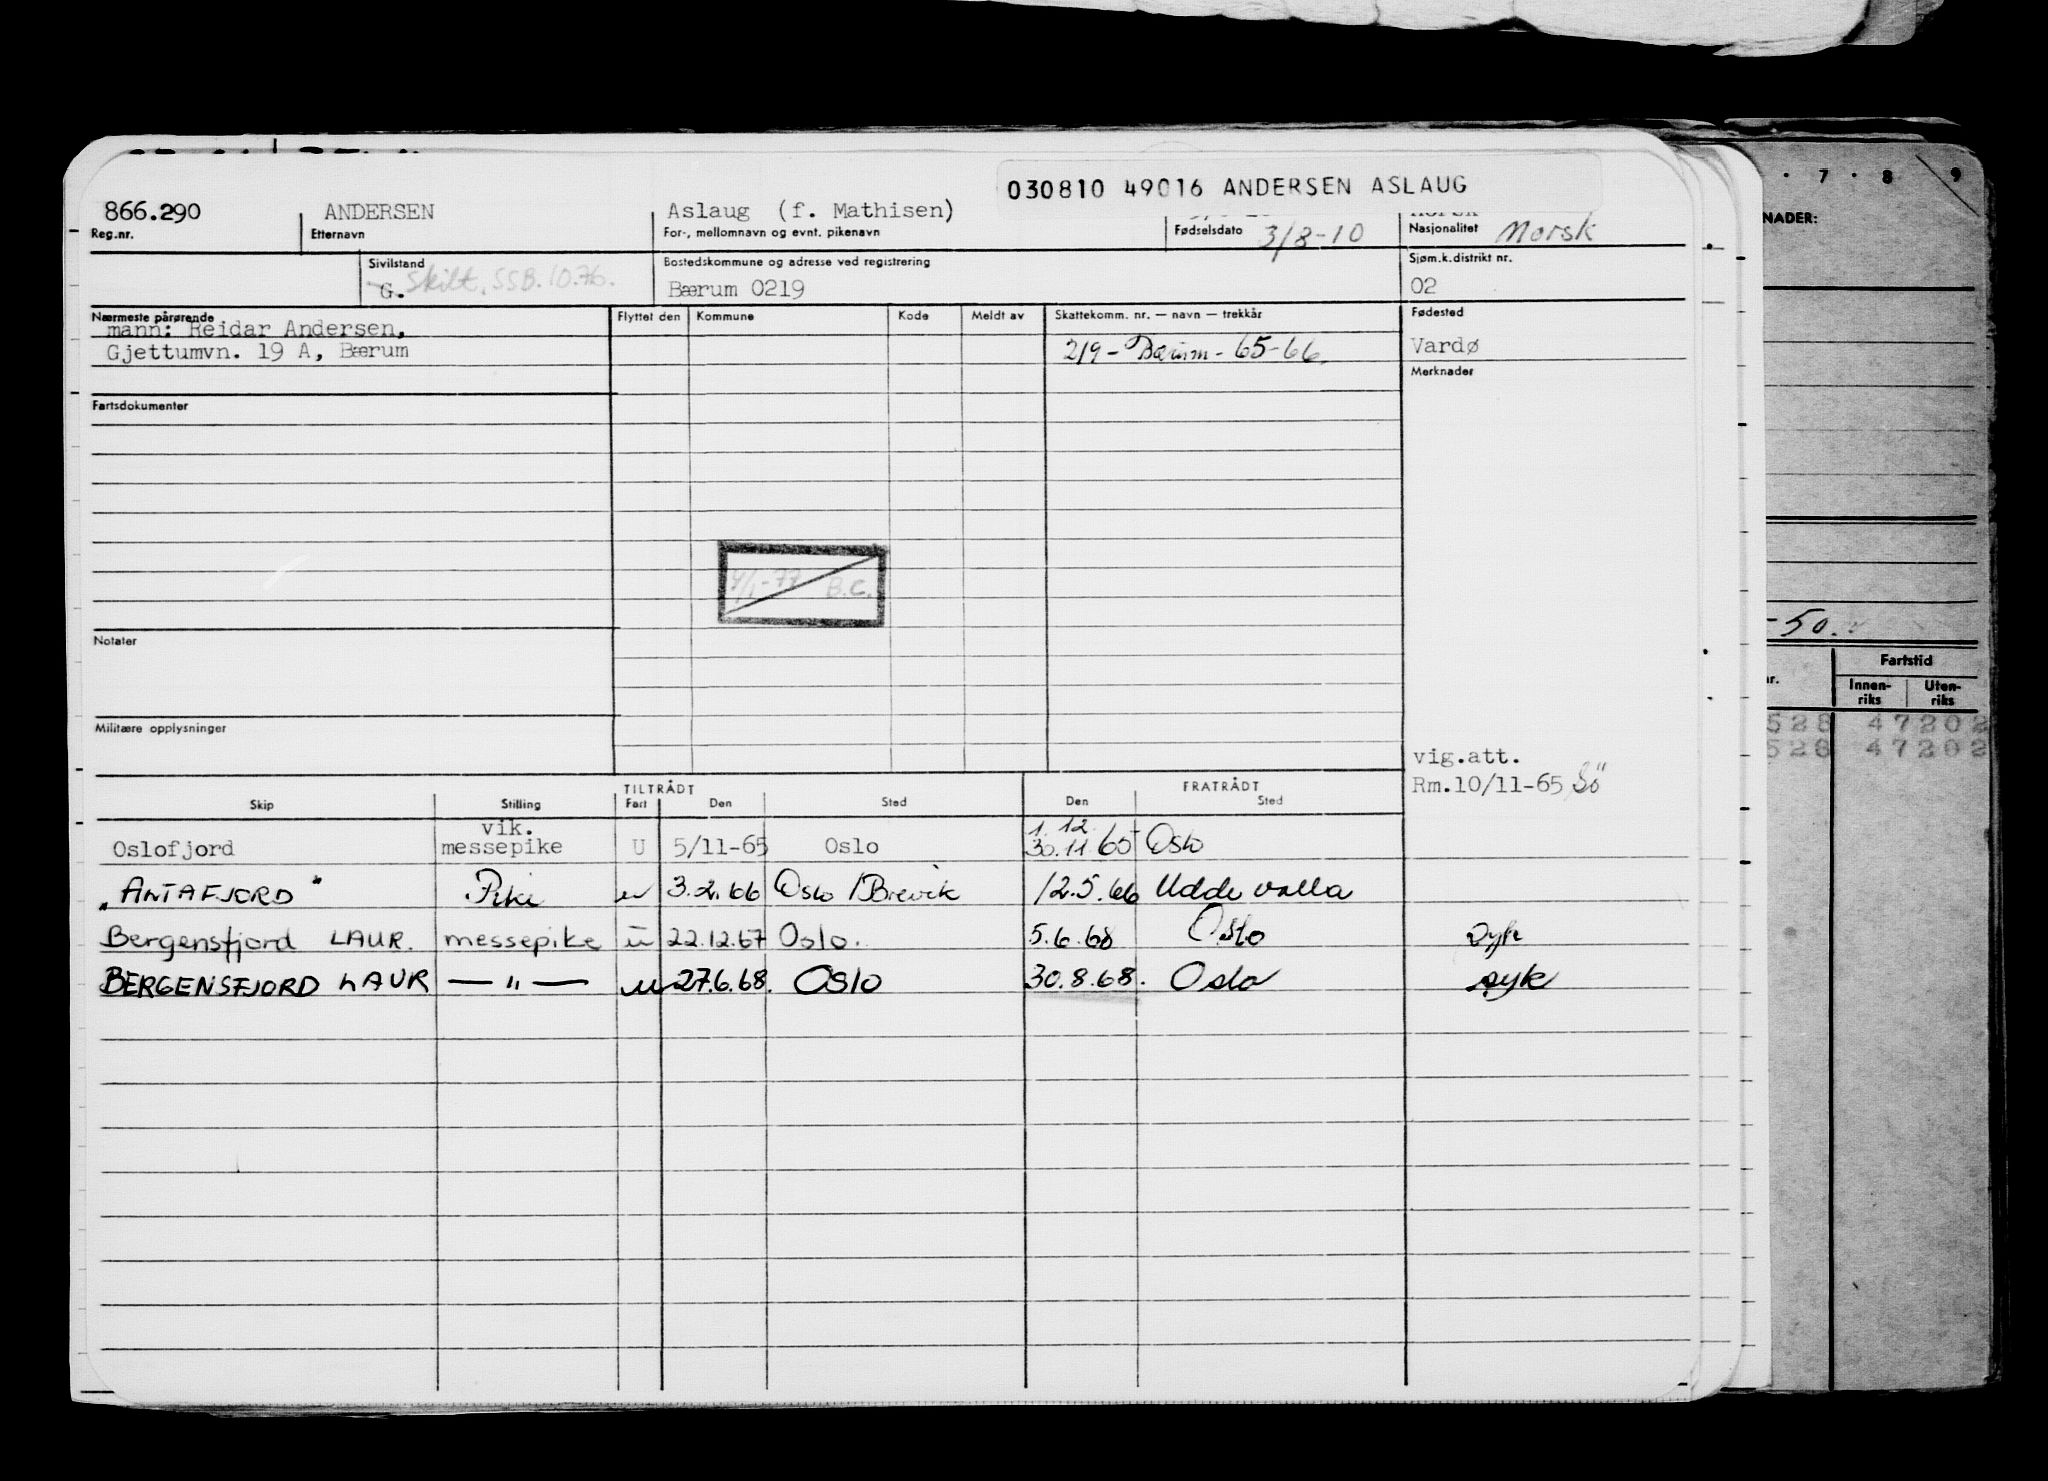 030810 49016 ANDERSEN ASLAUG
866.290 ANDERSEN Aslaug (f. Mathisen) 3/8-10 Norsk
Reg.nr. Etternavn For-, mellomnavn og evnt. pikenavn Fødselsdato Nasjonalitet
Sivilstand Bostedskommune og adresse ved registrering Sjøm.k.distrikt nr.
G. Skilt. SSB. 10.76. Bærum 0219 02
Nærmeste pårørende Flyttet den Kommune Kode Meldt av Skattekomm. nr. — navn — trekkår Fødested
mann: Reidar Andersen,
Gjettumvn. 19 A, Bærum 219 - Bærum - 65-66. Vardø
Merknader
Fartsdokumenter
4/1-77 B.C.
Notater
Militære opplysninger
vig.att.
Rm.10/11-65
TILTRÅDT FRATRÅDT
Skip Stilling Fart Den Sted Den Sted
vik. 1. 12.
Oslofjord messepike U 5/11-65 Oslo 30.11 65 Oslo
"ANTAFJORD" Pike u 3.2.66 Oslo/Brevik 12.5.66 Uddevalla
Bergensfjord LAUR. messepike u 22.12.67 Oslo. 5.6.68 Oslo syk
BERGENSFJORD LAUR — " — u 27.6.68. Oslo 30.8.68. Oslo syk
7 8 9
NADER:
-50.
Fartstid
nr. Innen-riks Uten-riks
528 47202
528 47202